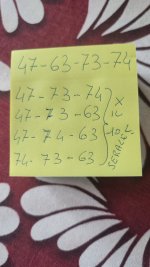 47-63-73-74
47-73-74
47-73-63
47-74-63
74-73-63
X